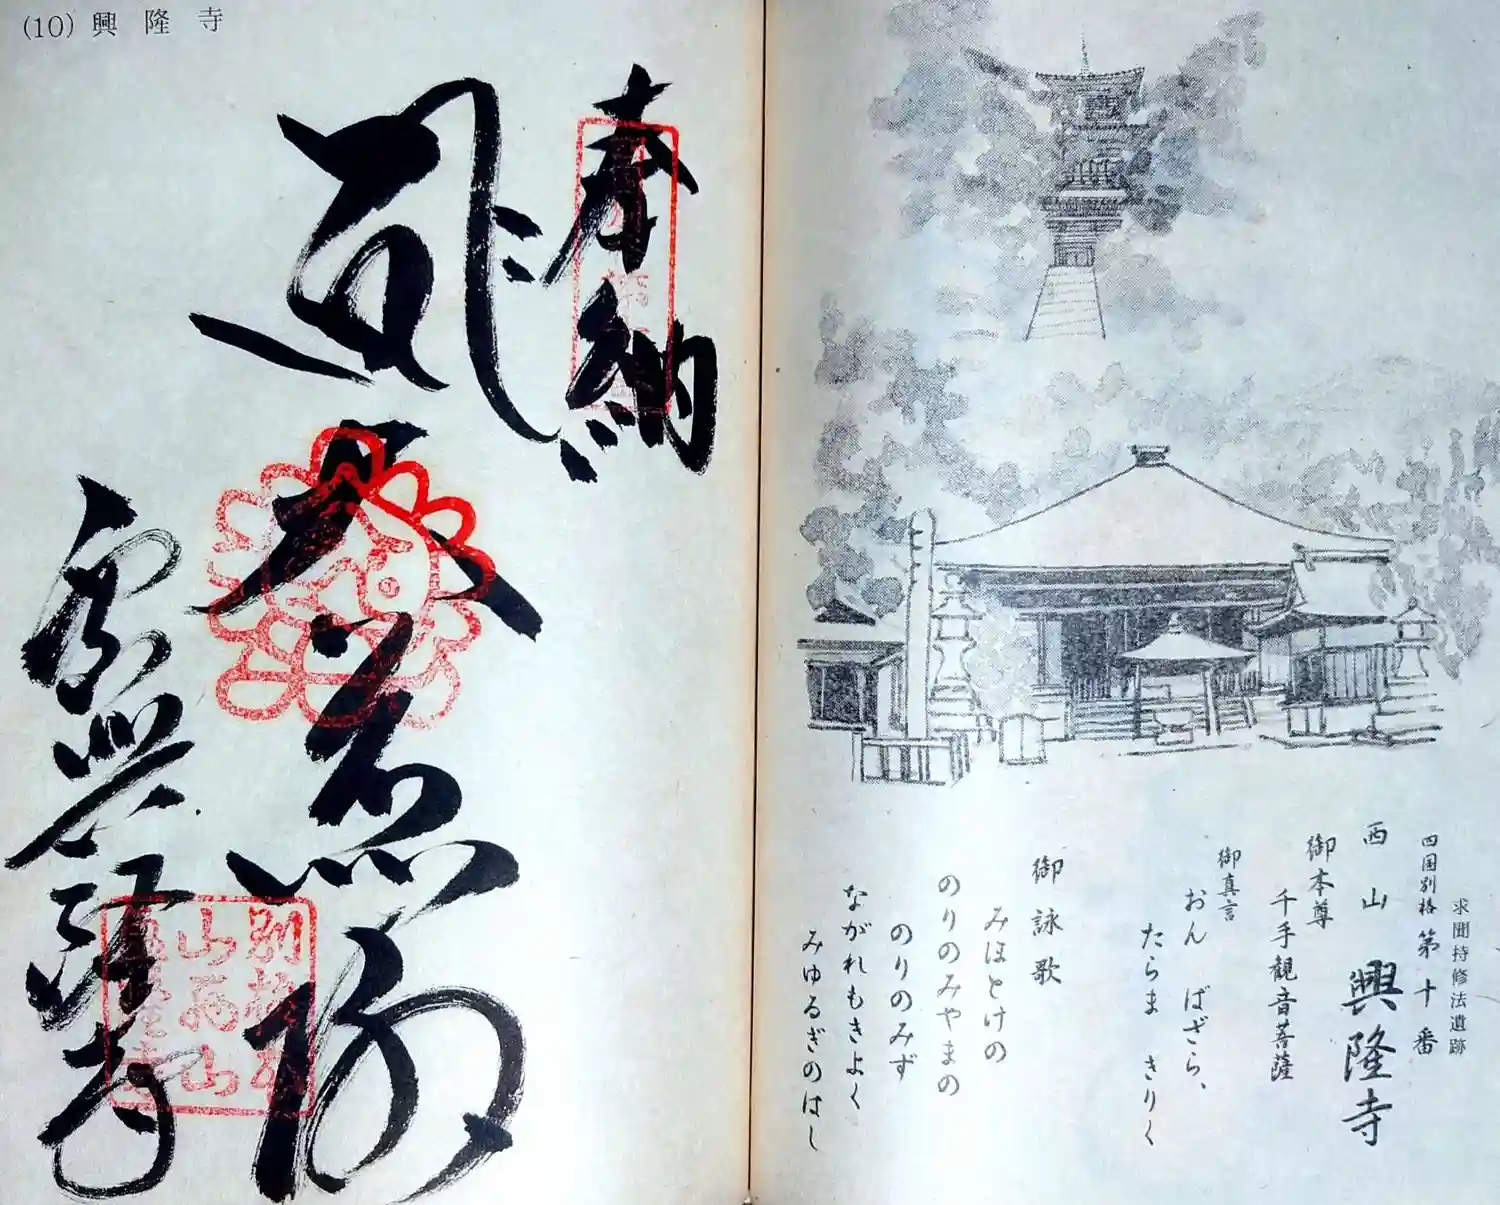 求聞持修法遺跡
四国別格 第十番
西山 興隆寺
御本尊
千手観音菩薩
御真言
おん ばざら、
たらま きりく
御詠歌
みほとけの
のりのみやまの
のりのみず
ながれもきよく
みゆるぎのはし
(10) 興隆寺
奉納
大悲閣
興隆寺
別格本
山西山
興隆寺